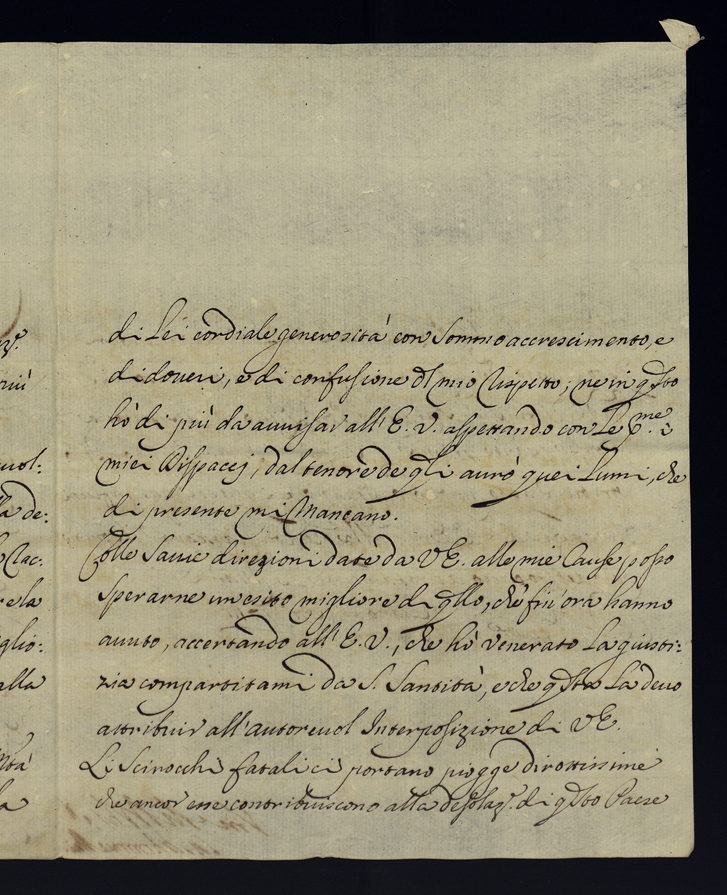 di Lei cordiale generosità con sommo accrescimento, e
di doueri, e di confusione dl mio Rispetto; ne in qsto
hò di più da auuisar all' E. V. aspettando con Le pme i
miei Dispacej, dal tenore de qli aurò quei Lumi, che
di presente mi Mancano.
Colle Sauie direzioni date da VE. alle mie Cause posso
sperarne un'esito migliore di qllo, che fin'ora hanno
auuto, accertando all' E. V., che hò venerato La giusti:
zia compartitami da S. Santità, e che qsta La deuo
attribuir all'autoreuol Interposizione di VE.
Li Scirocchi fatali ci portano piogge dirottissime
che ancor esse contribuiscono alla desolaz.e di qsto Paese
più
uol:
la de:
rela
glio:
alla
la